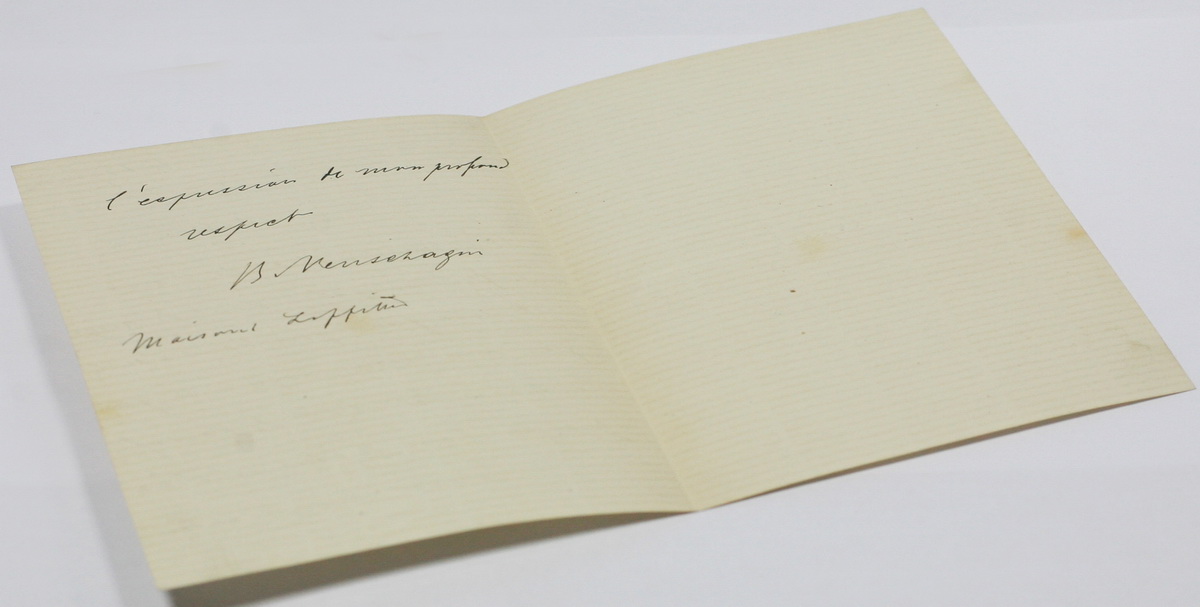 l'expression de mon profond
respect
B Vereschagin
Maisons Laffitte